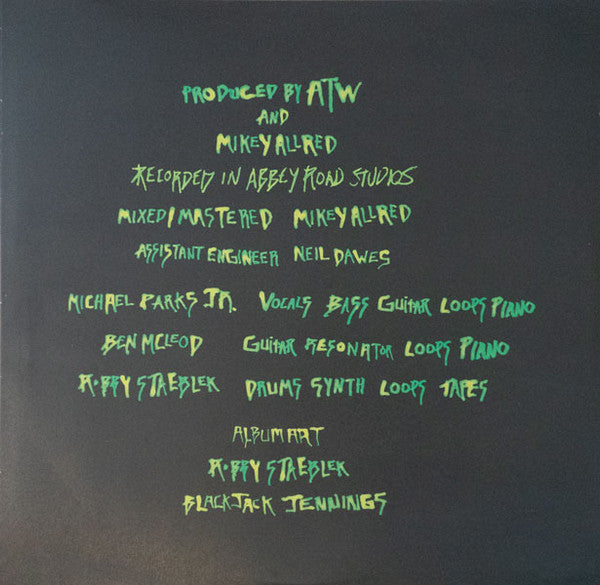 PRODUCED BY ATW
AND
MIKEY ALLRED
RECORDED IN ABBEY ROAD STUDIOS
MIXED/MASTERED MIKEY ALLRED
ASSISTANT ENGINEER NEIL DAWES
MICHAEL PARKS JR. VOCALS BASS GUITAR LOOPS PIANO
BEN MCLEOD GUITAR RESONATOR LOOPS PIANO
ROBBY STAEBLER DRUMS SYNTH LOOPS TAPES
ALBUM ART
ROBBY STAEBLER
BLACKJACK JENNINGS